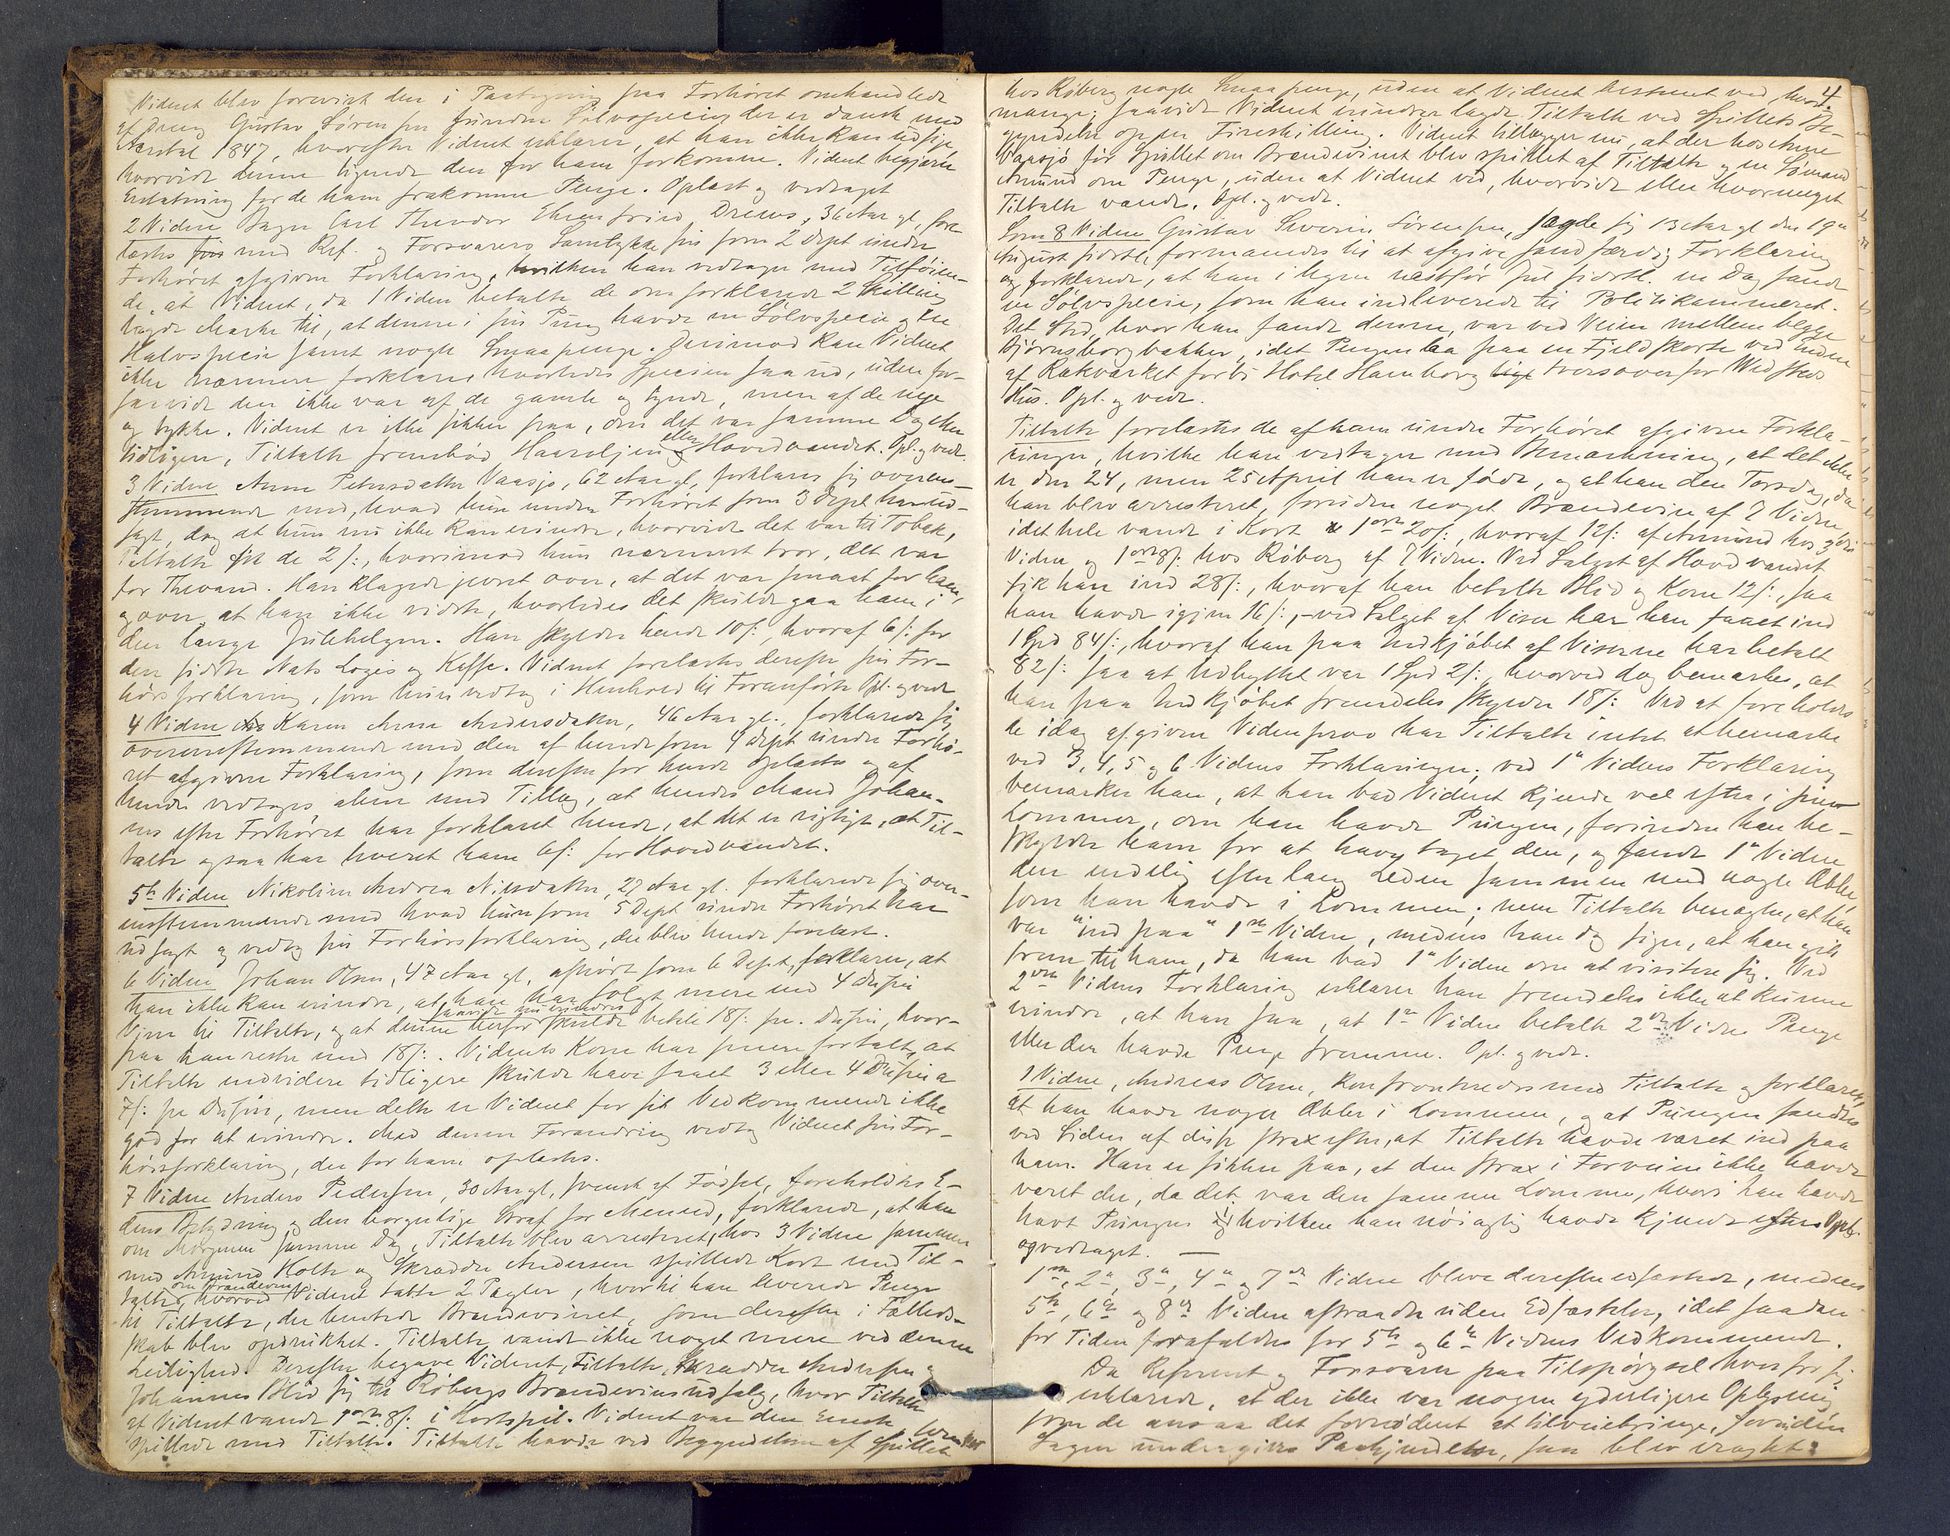 Vidnet blev forevist den i Paategning paa Forhøret omhandlede
af Dreng Gustav Sørensen fundne Sølvspecie, der er dansk med
Aarstal 1847, hvorefter Vidnet erklærer, at han ikke kan udsige
hvorvidt denne lignede den for ham forkomne. Vidnet begjærte
Erstatning for de ham frakomne Penge. Oplæst og vedtaget
2 Vidne Bager Carl Theodor Ehrenfried Drews, 36 Aar gl, fore-
læstes med Ref. og Forsvarers Samtykke sin som 2 Dept under
Forhøret afgivne Forklaring, hvilken han vedtager med Tilføien-
de, at Vidnet, da 1 Vidne betalte de om forklarede 2 Skilling
lagde Mærke til, at denne i sin Pung havde en Sølvspecie og en
Halvspecie samt nogle Smaapenge. Derimod kan Vidnet
ikke nærmere forklare, hvorledes Specien saa ud, uden for-
saavidt den ikke var af de gamle og tynde, men af de nye
og tykke. Vidnet er ikke sikker paa, om det var samme Dag eller
tidligere, Tiltalte frembød Haaroljen eller Hovedvandet. Opl. og vedt.
3 Vidne Anne Petersdatter Vaasjø, 62 Aar gl, forklarer sig overens-
stemmende med, hvad hun under Forhøret som 3 Dept har ud-
sagt, dog at hun nu ikke kan erindre, hvorvidt det var til Tobak,
Tiltalte fik de 2 /:, hvorimod hun nærmest tror, det var
for Thevand. Han klagede jevnt over, at det var smaat for ham,
og over, at han ikke vidste, hvorledes det skulde gaa ham i
den lange Julehelgen. Han skyldte hende 10 /:, hvoraf 6 /: for
den sidste Nats Logis og Kaffe. Vidnet forelæstes derefter sin For-
hørsforklaring, som hun vedtog i Henhold til Foranførte. Opl. og vedt
4 Vidne Karen Anne Andersdatter, 46 Aar gl., forklarede sig
overensstemmende med den af hende som 4 Dept under Forhø-
ret afgivne Forklaring, som derefter for hende oplæstes og af
hende vedtages alene med Tillæg, at hendes Mand Johan-
nes efter Forhøret har forklaret hende, at det er rigtigt, at Til-
talte ogsaa har krævet ham 6/: for Hovedvandet.
5te Vidne Nikoline Andrea Nilsdatter, 27 Aar gl. forklarede sig over-
ensstemmende med hvad hun som 5 Dept under Forhøret har
udsagt og vedtog sin Forhørsforklaring, der blev hende forelæst.
6 Vidne Johan Olsen, 47 Aar gl, afhørt som 6 Dept, forklarer, at
han ikke kan erindre, at han har solgt mere end 4 Dusin
Viser til Tiltalte, og at denne saavidt nu erindres herfor skulde betale 18/: pr. Dusin, hvor-
paa han rester med 18/:. Vidnets Kone har senere fortalt, at
Tiltalte endvidere tidligere skulde have faaet 3 eller 4 Dusin a
7/: pr Dusin, men dette er Vidnet for sit Vedkommende ikke
god for at erindre. Med denne Forandring vedtog Vidnet sin For-
hørsforklaring, der for ham oplæstes.
7 Vidne Anders Pedersen, 30 Aar gl, svensk af Fødsel, foreholdtes E-
dens Betydning og den borgerlige Straf for Mened, forklarede, at han
om Morgenen samme Dag, Tiltalte blev arresteret, hos 3 Vidne sammen
med Amund Holte og Skrædder Andersen spillede Kort med Til-
talte om Brændevin, hvorved Vidnet tabte 2 Pægler, hvortil han leverede Penge
til Tiltalte, der hentede Brændevinet, som derefter i Fælleds-
skab blev opdrukket. Tiltalte vandt ikke noget mere ved denne
Leilighed. Derefter begave Vidnet, Tiltalte, Skrædder Andersen og
Johannes Blid sig til Røbergs Brændevinsudsalg, hvor Tiltalte
af Vidnet vandt 1 ort 8/: i Kortspil. Vidnet var den Eneste som
spillede med Tiltalte. Tiltalte havde ved Begyndelsen af Spillet
4.
hos Røberg nogle Smaapenge, uden at Vidnet bestemt ved, hvor-
mange; saavidt Vidnet erindrer lagde Tiltalte ved Spillets Be-
gyndelse op en Fireskilling. Vidnet tillægger nu, at der hos Anne
Vaasjø før Spillet om Brændevinet blev spillet af Tiltalte og en Sømand
Amund om Penge, uden at Vidnet ved, hvorvidt eller hvormeget
Tiltalte vandt. Opl. og vedt.
Som 8 Vidne Gustav Severin Sørensen, sagde sig 13 Aar gl den 19de
August sidstl, formanedes til at afgive sandfærdig Forklaring
og forklarede, at han i Ugen næstfør Jul sidstl. en Dag fandt
en Sølvspecie, som han indleverede til Politikammeret.
Det Sted, hvor han fandt denne, var ved Veien mellem begge
Bjørnsborgbakker, idet Pengen laa paa en Fjeldskorte ved Enden
af Rækværket forbi Hotel Hamborg tversover for Wedsteds
Hus. Opl. og vedt.
Tiltalte forelæstes de af ham under Forhøret afgivne Forkla-
ringer, hvilke han vedtager med Bemærkning, at det ikke
er den 24, men 25 April han er født, og at han den Torsdag, da
han blev arresteret, foruden noget Brændevin af 7 Vidne,
idethele vandt i Kort 1 ort 20/:, hvoraf 12/: af Amund hos 3die
Vidne og 1 ort 8/: hos Røberg af 7 Vidne. Ved Salget af Hovedvandet
fik han ind 28/:, hvoraf han betalte Blid og Kone 12/:, saa
han havde igjen 16/:, – ved Salget af Viser har han faaet ind
1 Spd 84/:, hvoraf han paa Indkjøbet af Viserne har betalt
82/: saa at Udbyttet var 1 Spd 2/:, hvorved dog bemærkes, at
han paa Indkjøbet fremdeles skylder 18/: Ved at foreholdes
de idag afgivne Vidneprov har Tiltalte intet at bemærke
ved 3, 4, 5 og 6 Vidnes Forklaringer; ved 1ste Vidnes Forklaring
bemærker han, at han bad Vidnet kjende vel efter i sine
Lommer, om han havde Pungen, forinden han be-
skyldte ham for at have taget den, og fandt 1ste Vidne
den endelig efter lang Leden sammen med nogle Æbler
som han havde i Lommen; men Tiltalte benægter, at han
var "ind paa" 1ste Vidne, medens han dog siger, at han gik
frem til ham, da han bad 1ste Vidne om at visitere sig. Ved
2den Vidnes Forklaring erklærer han fremdeles ikke at kunne
erindre, at han saa, at 1ste Vidne betalte 2det Vidne Penge
eller den havde Penge fremme. Opl. og vedt.
1 Vidne, Andreas Olsen, konfronteredes med Tiltalte og forklarede,
at han havde nogle Æbler i Lommen, og at Pungen fandtes
ved Siden af disse strax efter, at Tiltalte havde været ind paa
ham. Han er sikker paa, at den strax i Forveien ikke havde
været der, da det var den samme Lomme, hvori han havde
havt Pungen og i hvilken han nøiagtig havde kjendt efter. Oplæst
og vedtaget. —
1ste, 2det, 3die, 4de og 7de Vidne bleve derefter edfæstede, medens
5te, 6te og 8de Vidne aftraadte uden Edfæstelse, idet saadan
for Tiden frafaldtes for 5te og 6te Vidnes Vedkommende.
Da Referent og Forsvarer paa Tilspørgsel hver for sig
erklærede, at der ikke var nogen yderligere Oplysning
som de ansaa det fornødent at tilveiebringe, forinden
Sagen undergives Paakjendelse, saa blev eragtet: